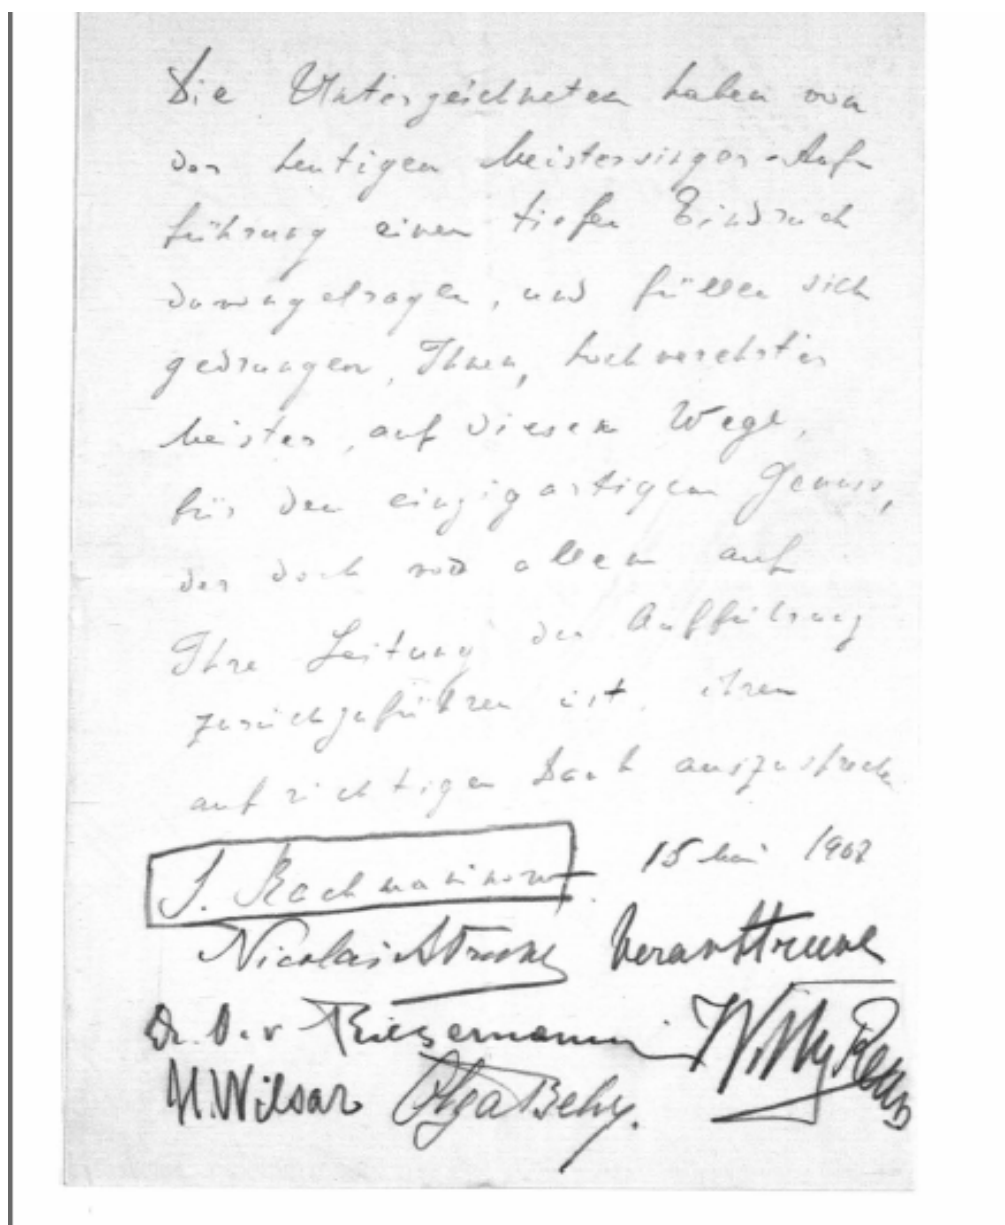 Die Unterzeichneten haben von
der heutigen Meistersinger-Auf-
führung einen tiefen Eindruck
davongetragen, und fühlen sich
gedrungen, Ihnen, hochverehrter
Meister, auf diesem Wege,
für den einzigartigen Genuss,
der doch vor allem auf
Ihre Leitung der Aufführung
zurückzuführen ist, ihren
aufrichtigen Dank auszusprechen
S. Rachmaninow 15 Mai 1908
Nicolai Struve Vera Struve
Dr. O. v Riesemann Willy
H. Wilsar Olga